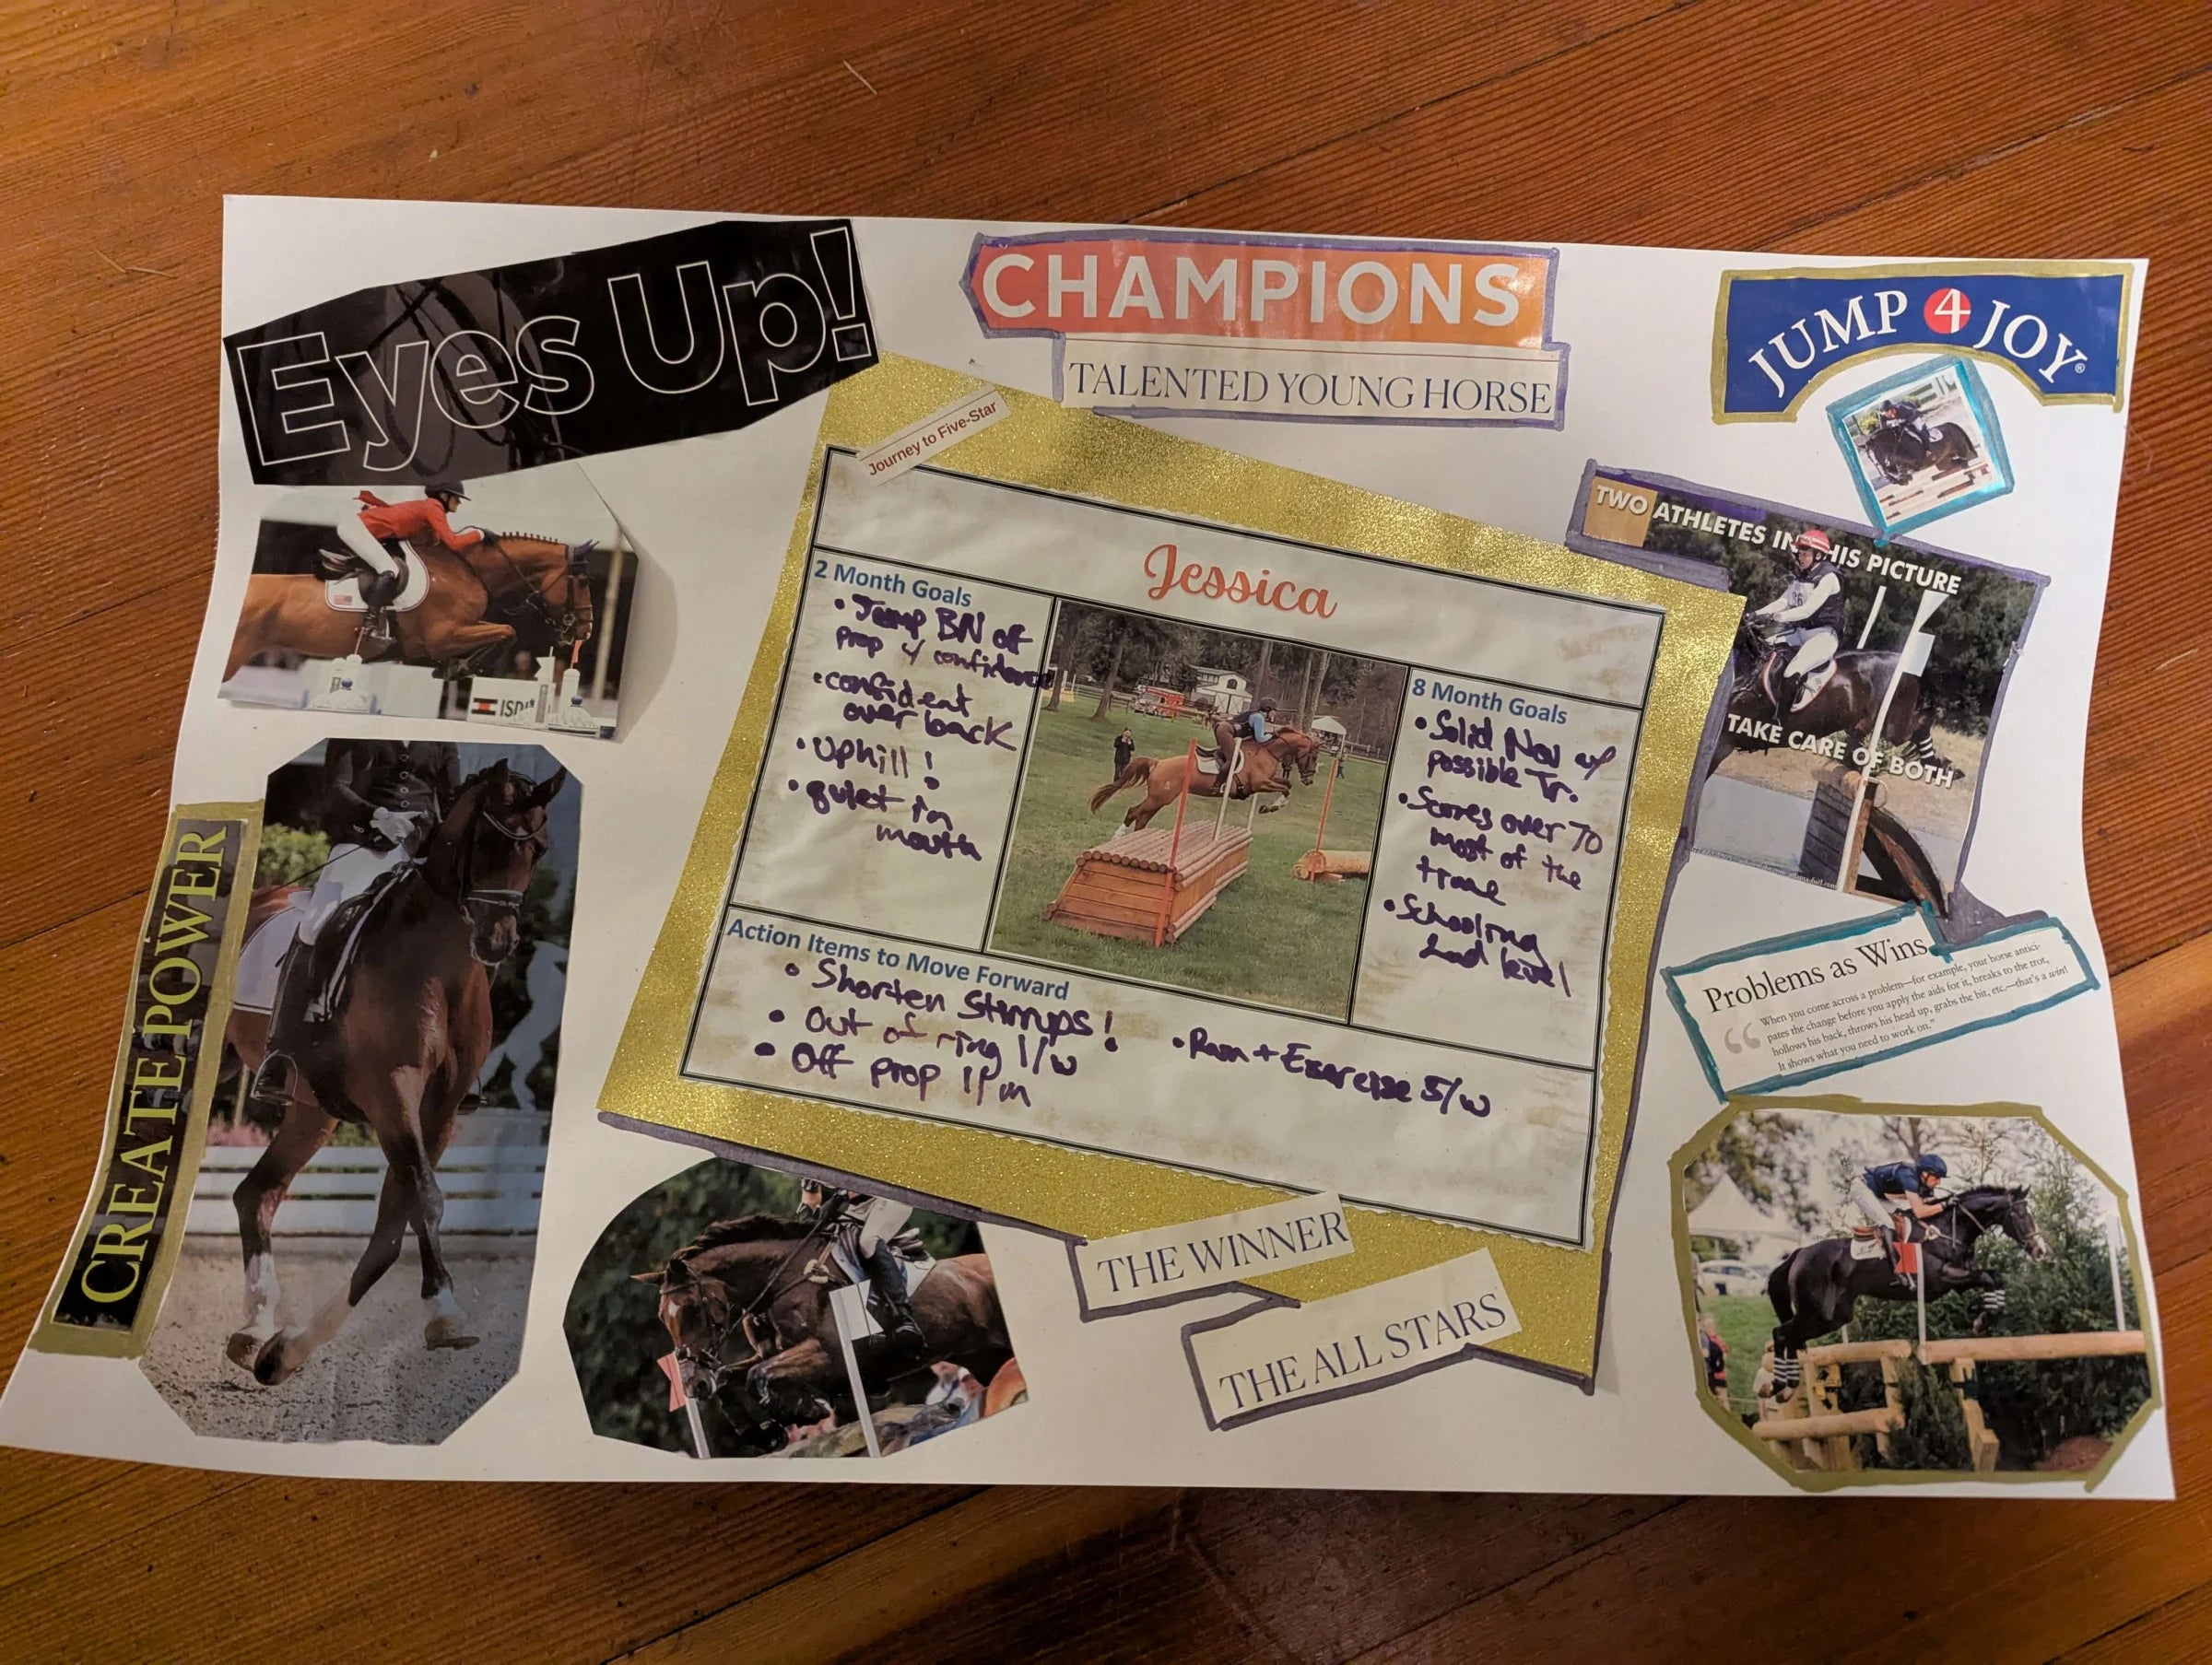 Eyes Up!
CHAMPIONS
TALENTED YOUNG HORSE
JUMP 4 JOY®
Journey to Five-Star
Jessica
2 Month Goals
• Jump BN off
prop w/ confidence
• confident
over back
• Uphill!
• quiet in
mouth
8 Month Goals
• Solid Nov w/
possible Tr.
• Scores over 70
most of the
time
• Schooling
2nd level
Action Items to Move Forward
• Shorten Stirrups!
• Out of ring 1/w
• Off prop 1/m
• Ram + Exercise 5/w
TWO ATHLETES IN THIS PICTURE
TAKE CARE OF BOTH
Problems as Wins
“ When you come across a problem—for example, your horse antici-
pates the change before you apply the aids for it, breaks to the trot,
hollows his back, throws his head up, grabs the bit, etc.—that's a win!
It shows what you need to work on.”
CREATE POWER
THE WINNER
THE ALL STARS